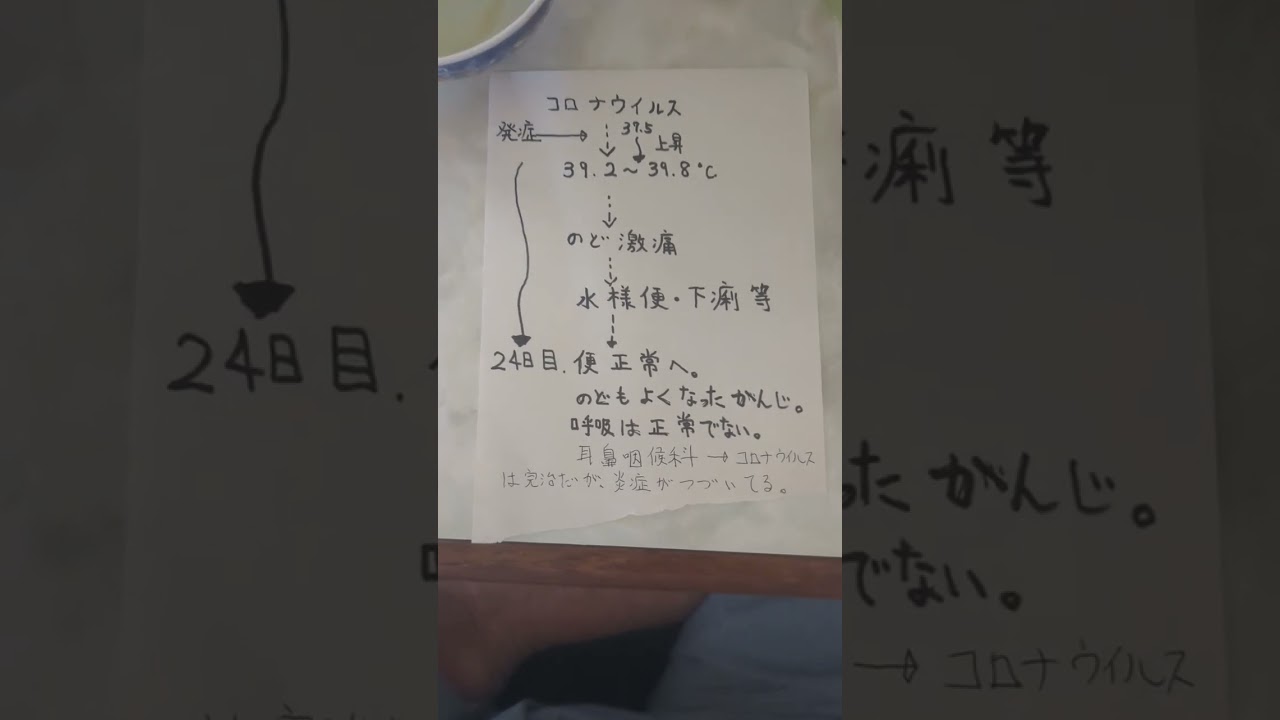 コロナウイルス
発症 37.5
上昇
39.2〜39.8℃
のど激痛
水様便・下痢等
24日目. 便正常へ。
のどもよくなったがんじ。
呼吸は正常でない。
耳鼻咽候科→コロナウイルス
は完治だが、炎症がつづいてる。